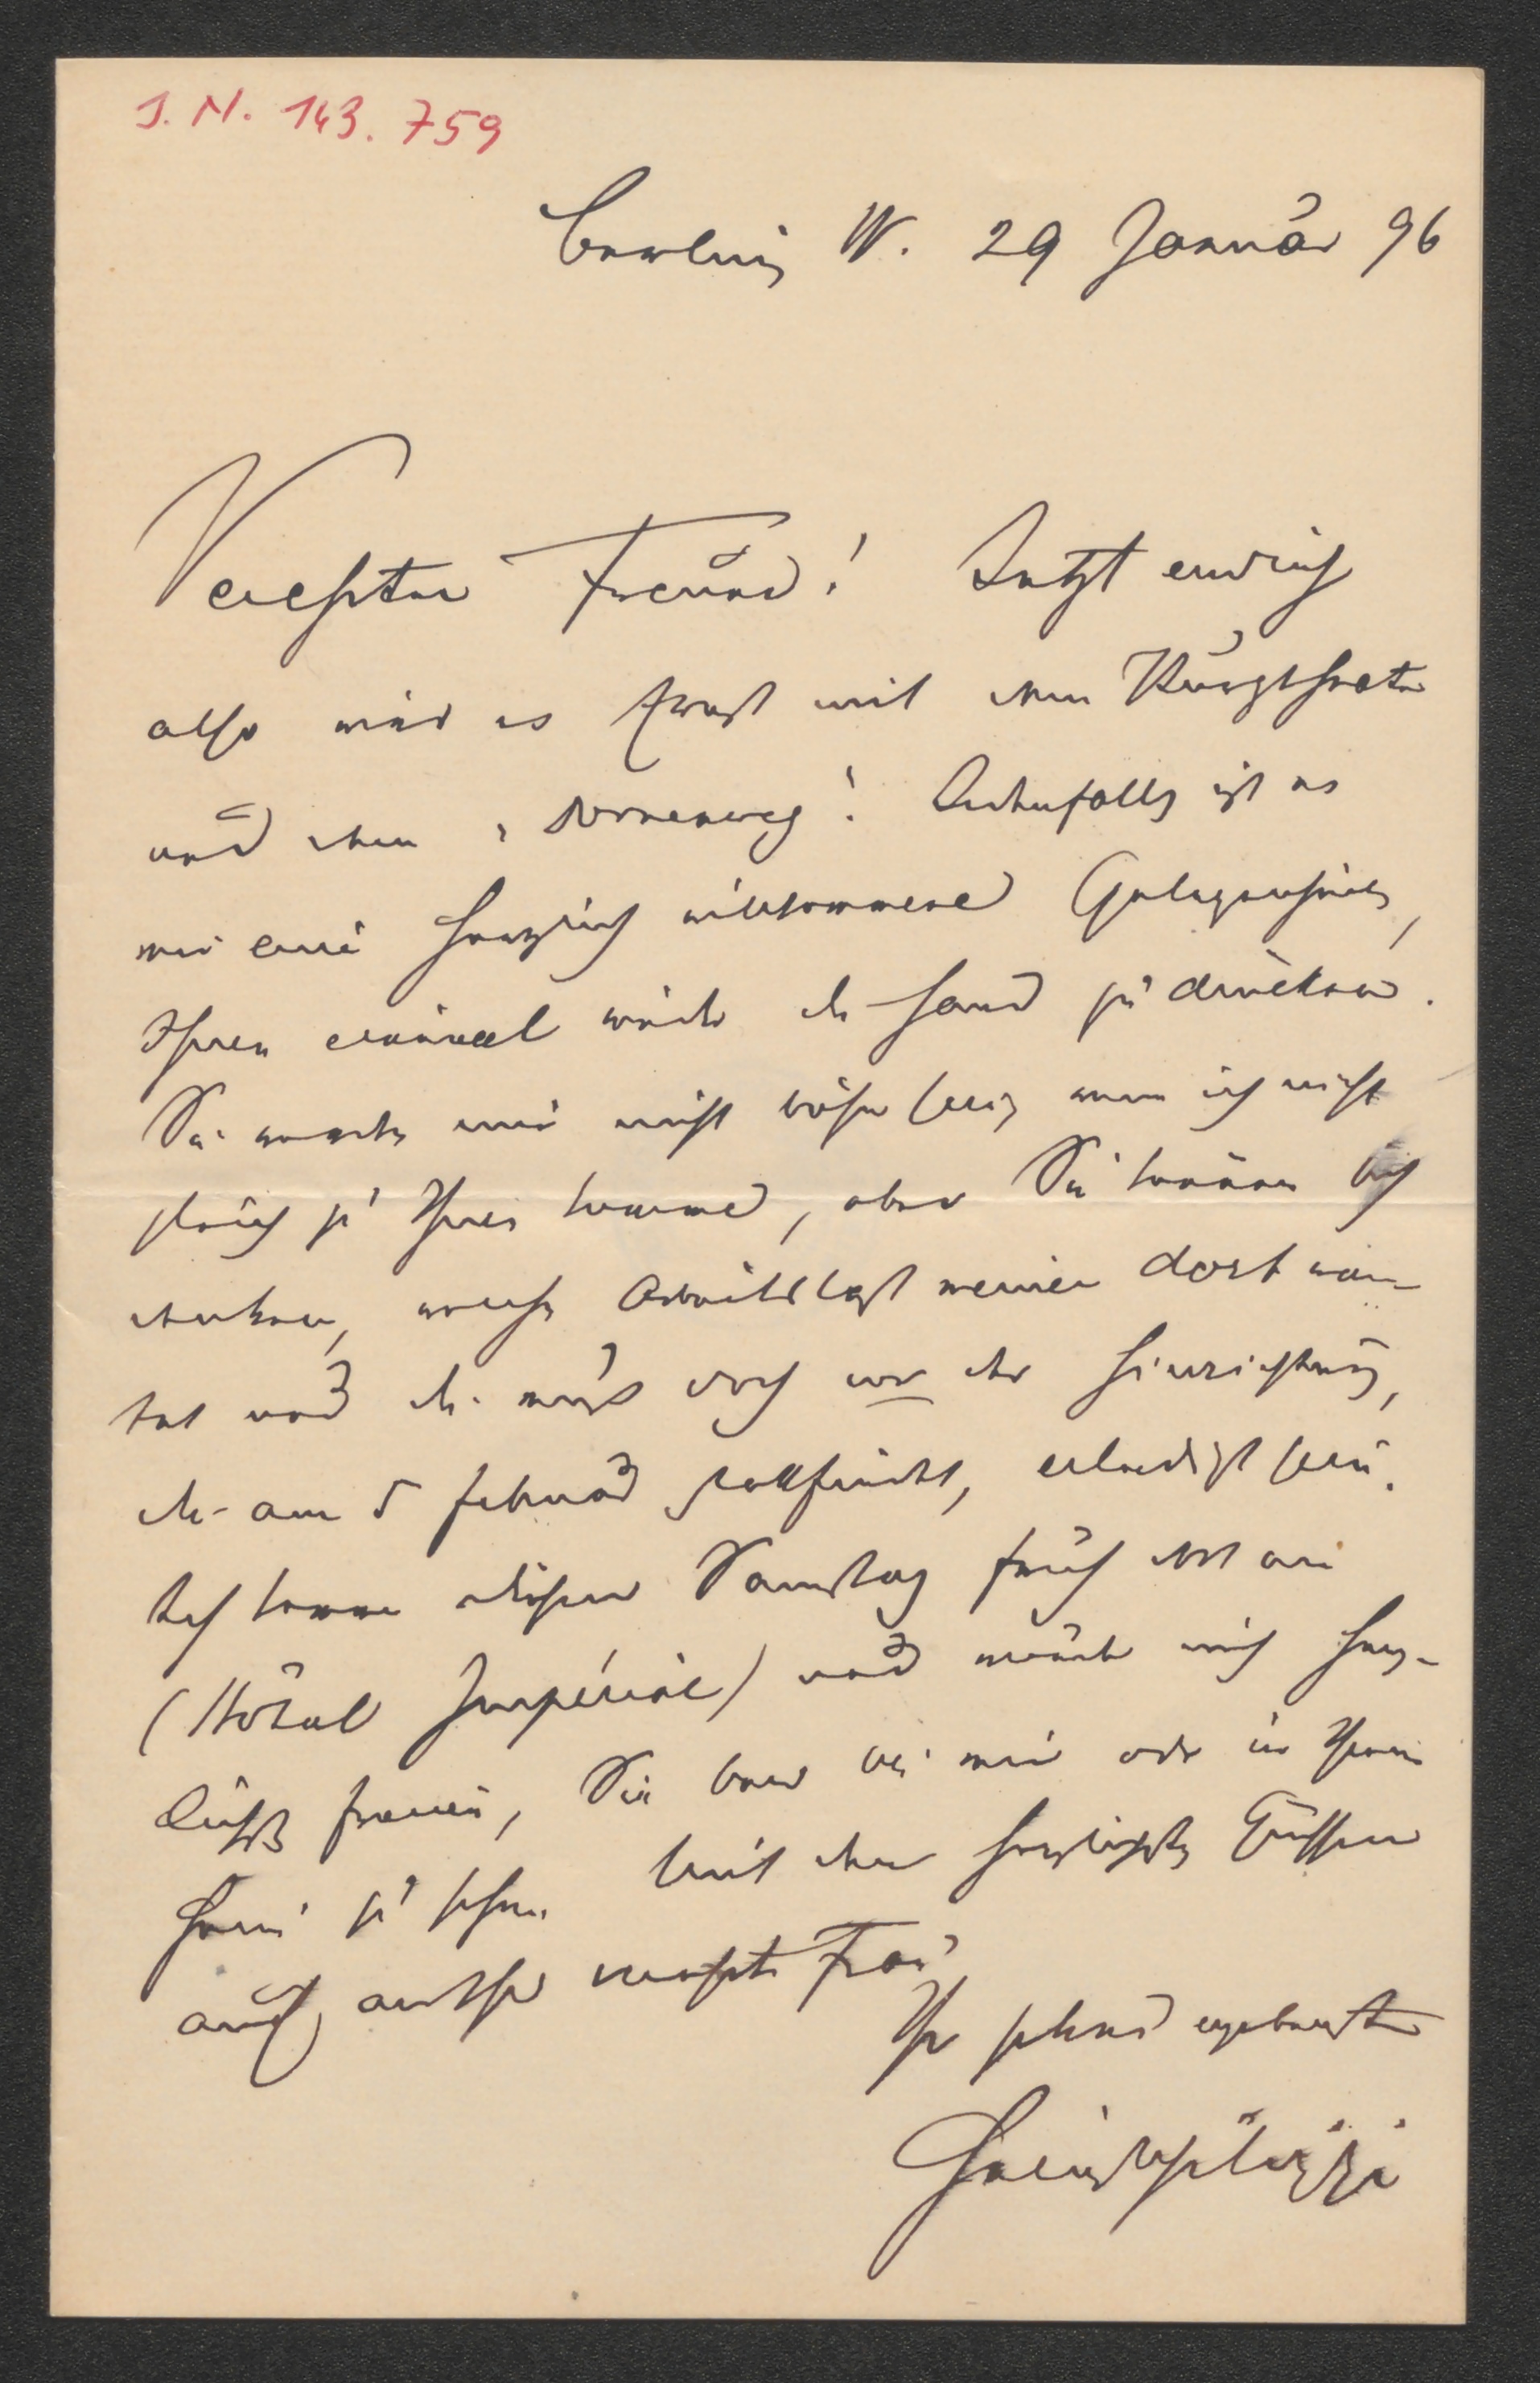 J. N. 143.759
Berlin W. 29 Januar 96
Verehrter Freund! Jetzt endlich
also wird es Ernst mit dem Burgtheater
und dem Dornenweg! Jedenfalls ist es
mir eine herzlich willkommene Gelegenheit,
Ihnen einmal wieder die Hand zu drücken.
Sie werden mir nicht böse sein, wenn ich nicht
gleich zu Ihnen komme, aber Sie können sich
denken, welche Arbeitslast meiner dort war-
tet und die muß doch vor der Hinrichtung,
die am 5 Februar stattfindet, erledigt sein.
Ich komme diesen Samstag früh dort an
(Hôtel Impérial) und würde mich herz-
lichst freuen, Sie bald bei mir oder in Ihrem
Heim zu sehen. Mit den herzlichsten Grüßen
auch an Ihre verehrte Frau
Ihr sehr ergebenster